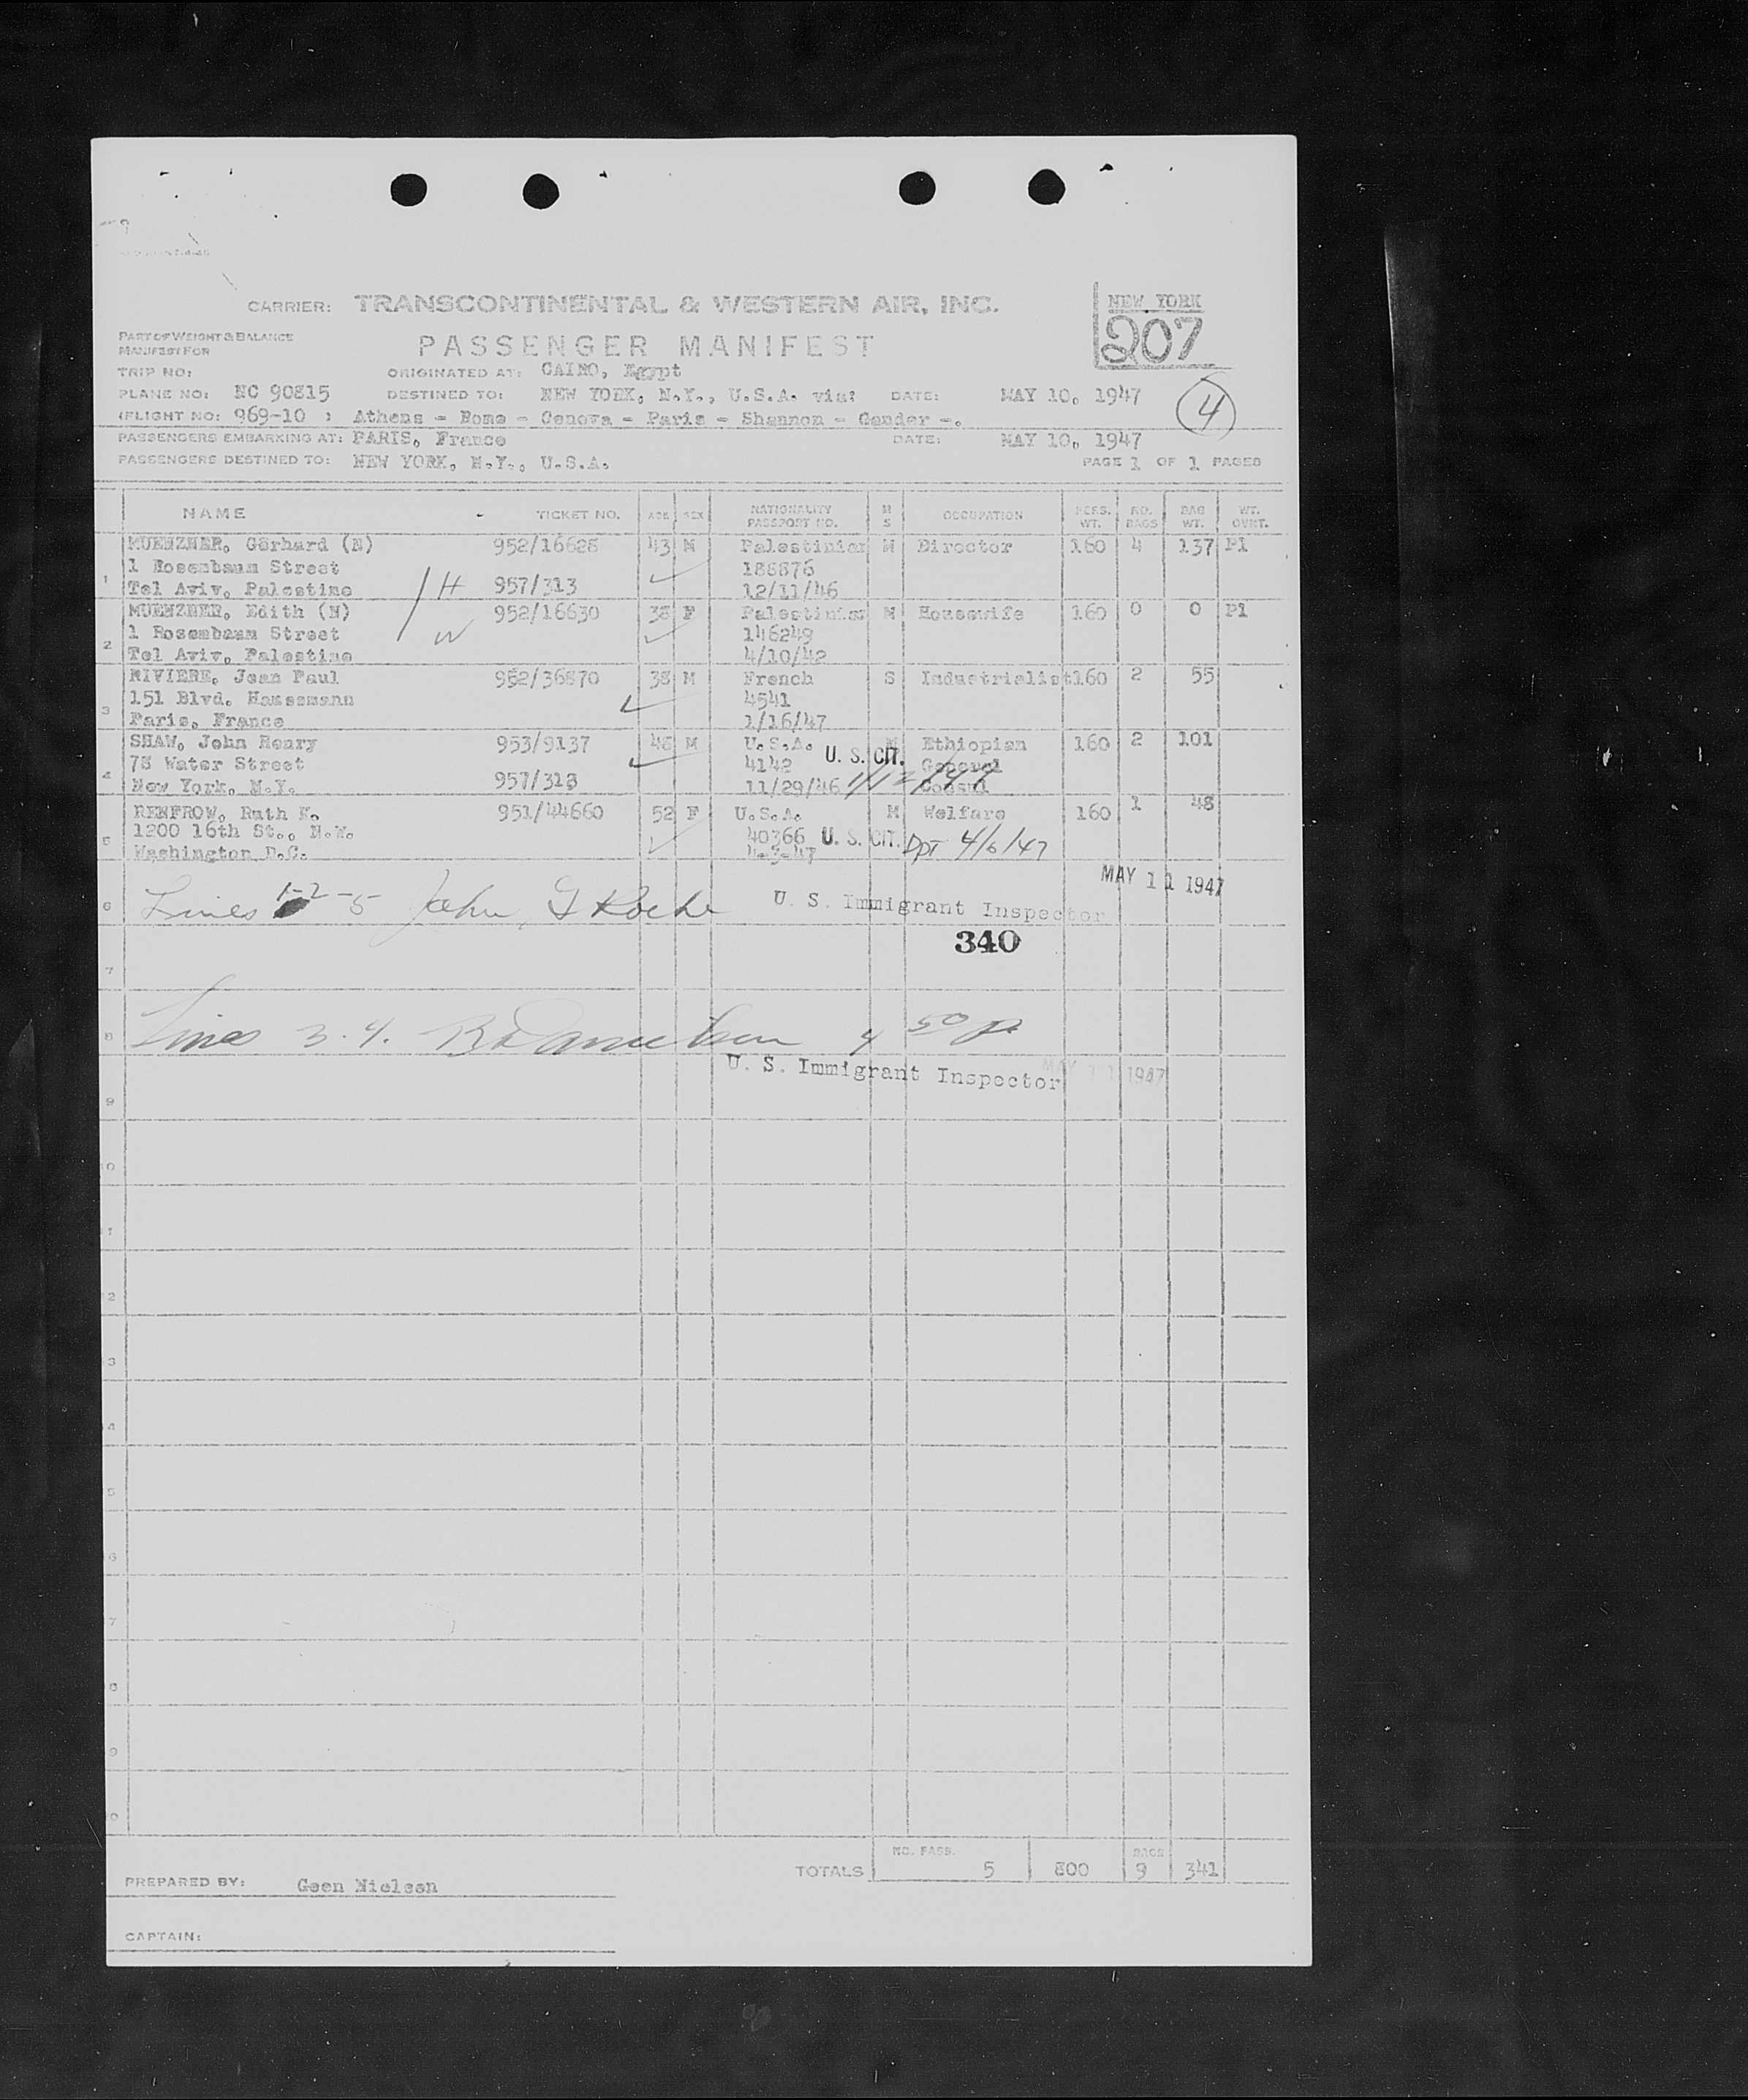 CARRIER: TRANSCONTINENTAL & WESTERN AIR, INC.
NEW YORK
207
PART OF WEIGHT & BALANCE
MANIFEST FOR
PASSENGER MANIFEST
TRIP NO: ORIGINATED AT: CAIRO, Egypt
PLANE NO: NC 90815 DESTINED TO: NEW YORK, N.Y., U.S.A. via: DATE: MAY 10, 1947
4
(FLIGHT NO: 969-10 : Athens - Rome - Genova - Paris - Shannon - Gander -.
PASSENGERS EMBARKING AT: PARIS, France DATE: MAY 10, 1947
PASSENGERS DESTINED TO: NEW YORK, N.Y., U.S.A. PAGE 1 OF 1 PAGES
NAME TICKET NO. AGE SEX NATIONALITY PASSPORT NO. M S OCCUPATION PERS. WT. NO. BAGS BAG WT. WT. OVNT.
MUENZNER, Gerhard (N) 952/16628 43 M Palestinian M Director 160 4 137 P1
1 Rosenbaum Street 188876
1 Tel Aviv, Palestine H 957/313 12/11/46
MUENZNER, Edith (N) 952/16630 38 F Palestinian M Housewife 160 0 0 P1
1 Rosenbaum Street W 146249
2 Tel Aviv, Palestine 4/10/42
RIVIERE, Jean Paul 952/36870 38 M French S Industrialist 160 2 55
151 Blvd. Haussmann 4541
3 Paris, France 1/16/47
SHAW, John Henry 953/9137 48 M U.S.A. M Ethiopian 160 2 101
78 Water Street 4142 U. S. CIT. General
4 New York, N.Y. 957/318 11/29/46 Consul
RENFROW, Ruth K. 951/44660 52 F U.S.A. M Welfare 160 1 48
1200 16th St., N.W. 40366 U. S. CIT. Dpt 4/6/47
5 Washington D.C. 4-3-47
MAY 11 1947
6 Lines 1-2-5 John G Roche U. S. Immigrant Inspector
340
7
8 Lines 3.4. 4 50 P
U. S. Immigrant Inspector MAY 11 1947
9
10
11
12
13
14
15
16
17
18
19
20
TOTALS NO. PASS. 5 800 BAGS 9 341
PREPARED BY: Geen Nielsen
CAPTAIN: